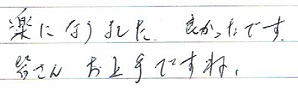 楽になりました 良かったです
皆さん お上手ですね、